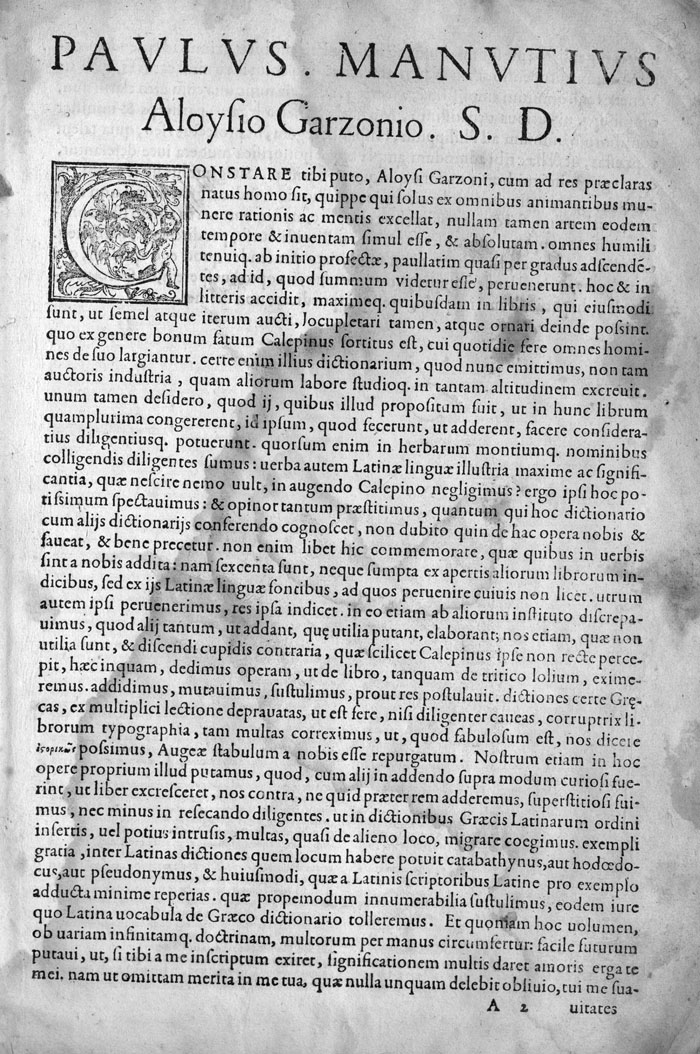 PAVLVS. MANVTIVS
Aloysio Garzonio. S. D.
CONSTARE tibi puto, Aloysi Garzoni, cum ad res præclaras
natus homo sit, quippe qui solus ex omnibus animantibus mu-
nere rationis ac mentis excellat, nullam tamen artem eodem
tempore & inuentam simul esse, & absolutam. omnes humili
tenuiq. ab initio profectæ, paullatim quasi per gradus adscendē-
tes, ad id, quod summum videtur esse, peruenerunt. hoc & in
litteris accidit, maximeq. quibusdam in libris, qui eiusmodi
sunt, ut semel atque iterum aucti, locupletari tamen, atque ornari deinde possint.
quo ex genere bonum fatum Calepinus sortitus est, cui quotidie fere omnes homi-
nes de suo largiantur. certe enim illius dictionarium, quod nunc emittimus, non tam
auctoris industria, quam aliorum labore studioq. in tantam altitudinem excreuit.
unum tamen desidero, quod ij, quibus illud propositum fuit, ut in hunc librum
quamplurima congererent, id ipsum, quod fecerunt, ut adderent, facere considera-
tius diligentiusq. potuerunt. quorsum enim in herbarum montiumq. nominibus
colligendis diligentes sumus: uerba autem Latinæ linguæ illustria maxime ac signifi-
cantia, quæ nescire nemo uult, in augendo Calepino negligimus? ergo ipsi hoc po-
tissimum spectauimus: & opinor tantum præstitimus, quantum qui hoc dictionario
cum alijs dictionarijs conferendo cognoscet, non dubito quin de hac opera nobis &
faueat, & bene precetur. non enim libet hic commemorare, quæ quibus in uerbis
sint a nobis addita: nam sexcenta sunt, neque sumpta ex apertis aliorum librorum in-
dicibus, sed ex ijs Latinæ linguæ fontibus, ad quos peruenire cuiuis non licet. utrum
autem ipsi peruenerimus, res ipsa indicet. in eo etiam ab aliorum instituto discrepa-
uimus, quod alij tantum, ut addant, quę utilia putant, elaborant; nos etiam, quæ non
utilia sunt, & discendi cupidis contraria, quæ scilicet Calepinus ipse non recte perce-
pit, hæc inquam, dedimus operam, ut de libro, tanquam de tritico lolium, exime-
remus. addidimus, mutauimus, sustulimus, prout res postulauit. dictiones certe Grę-
cas, ex multiplici lectione deprauatas, ut est fere, nisi diligenter caueas, corruptrix li-
brorum typographia, tam multas correximus, ut, quod fabulosum est, nos dicere
ἱστορικῶς possimus, Augeæ stabulum a nobis esse repurgatum. Nostrum etiam in hoc
opere proprium illud putamus, quod, cum alij in addendo supra modum curiosi fue-
rint, ut liber excresceret, nos contra, ne quid præter rem adderemus, superstitiosi fui-
mus, nec minus in resecando diligentes. ut in dictionibus Græcis Latinarum ordini
insertis, uel potius intrusis, multas, quasi de alieno loco, migrare coegimus. exempli
gratia, inter Latinas dictiones quem locum habere potuit catabathynus, aut hodœdo-
cus, aut pseudonymus, & huiusmodi, quæ a Latinis scriptoribus Latine pro exemplo
adducta minime reperias. quæ propemodum innumerabilia sustulimus, eodem iure
quo Latina uocabula de Græco dictionario tolleremus. Et quoniam hoc uolumen,
ob uariam infinitamq. doctrinam, multorum per manus circumfertur: facile futurum
putaui, ut, si tibi a me inscriptum exiret, significationem multis daret amoris erga te
mei. nam ut omittam merita in me tua, quæ nulla unquam delebit obliuio, tui me sua-
A 2 uitates